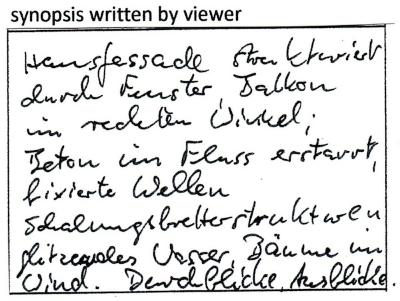 synopsis written by viewer
Hausfassade strukturiert
durch Fenster, Balkon
im rechten Winkel;
Beton im Fluss erstarrt,
fixierte Wellen
Schalungsbretterstrukturen
glitzerndes Wasser, Bäume im
Wind. Durchblicke, Ausblicke.